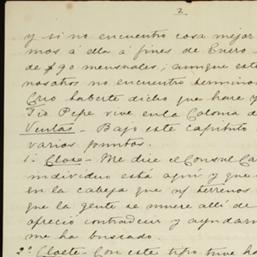 2.
y si no encuentro cosa mejor
mos á ella á fines de Enero
de $90 mensuales; aunque est
nosotros no encuentro termino
Creo haberte dicho que hace y
Tio Pepe vive en la Colonia d
Ventas - Bajo este capitulo
varios puntos.
1º Claeo - Me dice el Consul Ca
individuo está aquí y que
en la cabeza que n/ terrenos
que la gente se muere allí de
ofreció contradecir y ayudarn
me ha buscado.
2º Cloete - Con este tipo tuve ha